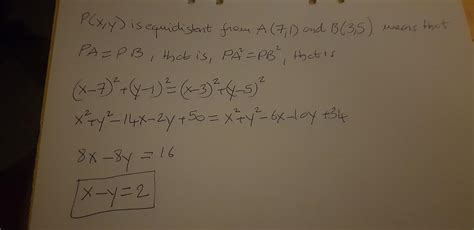 P(x,y) is equidistant from A(7,1) and B(3,5) means that
PA=PB, that is, PA²=PB², that is
(x-7)²+(y-1)²=(x-3)²+(y-5)²
x²+y²-14x-2y+50=x²+y²-6x-10y+34
8x-8y=16
x-y=2